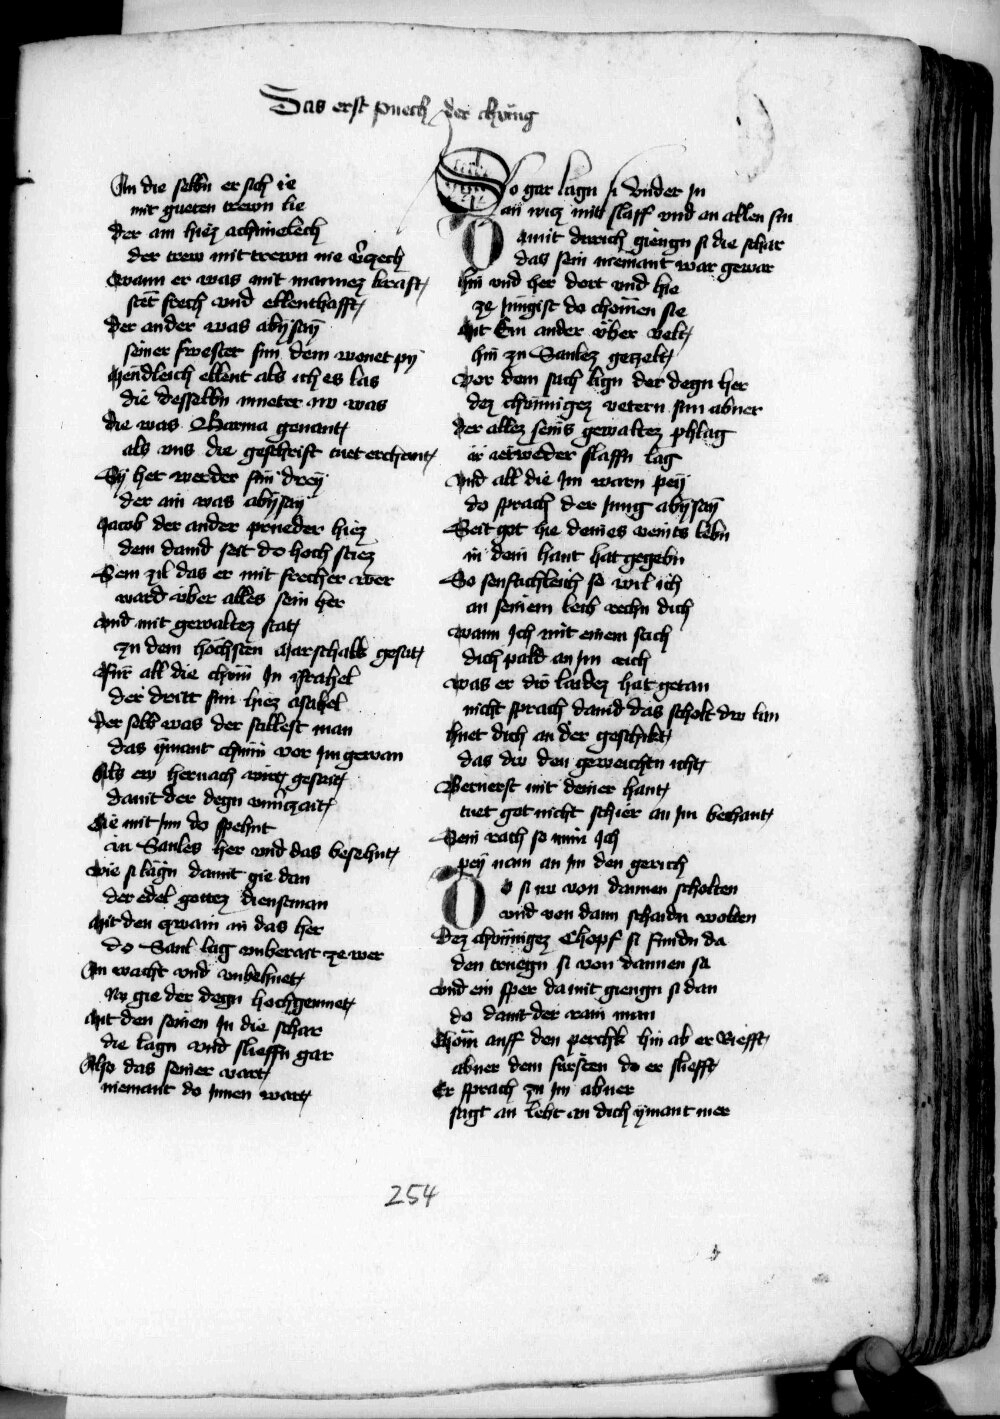 Das erst puech der chünig
An die selbn er sich ie
mit gueten trewn lie
Der ain hiez achimelech
der trew mit trewn nie
wann er was mit mannez kraft
stet frech und ellenthafft
Der ander was abysay
seiner swester sun dem wonet py
Mendleich ellent als ich es las
die desselbn mueter nv was
die was Sarma genant
als uns die geschrift tuet erchant
Sy het werder sün drey
der ain was abysay
Jacob der ander prueder hiez
dem dauid seit do hoch stiez
Sein zil das er mit frecher wer
ward über alles sein her
vnd mit gewaltez stat
zu dem höchsten marschalk gesat
für all die chom In israhel
der dritt sun hiez asahel
Der selb was der snellest man
das ymant chaim vor im gewan
Als ew hernach wirt gesait
damit der degn
Die mit Im do spehnt
in Saules her und das besehnt
wie si lägn damit gie dan
der edel gottez dienstman
Mit den qwam in das her
do Saul lag vnberait ze wer
An wacht vnd vnbehuet
Nv gie der degn hochgemuet
Mit den seinen In die schar
die lagn vnd slieffn gar
Also das seiner vart
niemant do Innen wart
So gar lagn si vnder In
an wicz mitt slaff vnd an allen sin
Damit durich giengn si die schar
das sein niemant war gewar
hin vnd her dort vnd hie
ze Jungist do chomen sie
Mit Ein ander über velt
hin zu Saulez getzelt
vor dem sach lign der degn her
dez chünnigez vetern sun abner
Der allez seins gewaltez phlag
ir ietweder slaffn lag
vnd all die Im warn pey
do sprach der Jung abysay
Seit got hie deines veints lebn
in dein hant hat gegebn
So senftichleich so wil ich
an seinem leib rechn dich
wann Ich mit einem stich
dich pald an Im rich
was er dir laidez hat getan
nicht sprach dauid das scholt dw lan
huet dich an der geschikt
das dw den geweichtn icht
Verserst mit deiner hant
tuet got nicht schier an Im bechant
Sein rach so nim Ich
pey nam an Im den gerich
Do si nv von dannen scholten
vnd von dann schaidn wolten
Dez chünnigez Chopf si fundn da
den truegn si von dannen sa
vnd ein sper da mit giengn si dan
do dauit der rain man
Chom auff den perchk hin ab er Riefft
abner dem fürsten do er sliefft
Er sprach zu Im abner
sagt an lebt an dich ymant mer
254